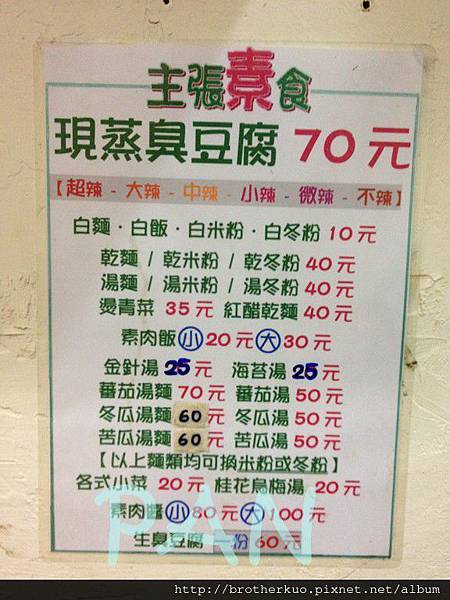 主張素食
現蒸臭豆腐 70元
【超辣-大辣-中辣-小辣-微辣-不辣】
白麵·白飯·白米粉·白冬粉 10元
乾麵 / 乾米粉 / 乾冬粉 40元
湯麵 / 湯米粉 / 湯冬粉 40元
燙青菜 35元 紅醋乾麵 40元
素肉飯 小 20元 大 30元
金針湯 25元 海苔湯 25元
蕃茄湯麵 70元 蕃茄湯 50元
冬瓜湯麵 60元 冬瓜湯 50元
苦瓜湯麵 60元 苦瓜湯 50元
【以上麵類均可換米粉或冬粉】
各式小菜 20元 桂花烏梅湯 20元
素肉醬 小 80元 大 100元
生臭豆腐 一份 60元
PAN
http://brotherkuo.pixnet.net/album